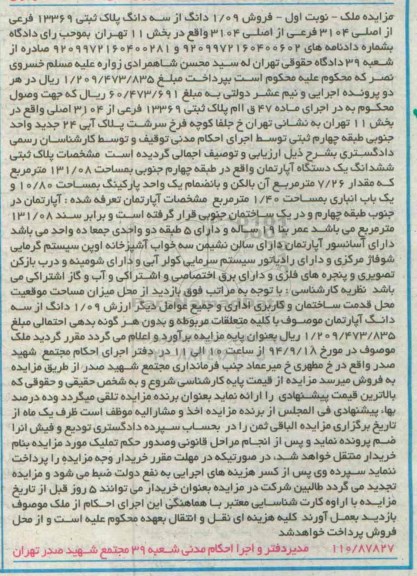 مزایده ملک - نوبت اول - فروش ۱/۰۹ دانگ از سه دانگ پلاک ثبتی ۱۳۳۶۹ فرعی
از اصلی ۳۱۰۴ فرعی از اصلی ۳۱۰۴ واقع در بخش ۱۱ تهران بموجب رای دادگاه
بشماره دادنامه های ۹۲۰۹۹۷۲۱۶۰۴۰۰۶۰۲ و ۹۲۰۹۹۷۲۱۶۰۴۰۰۲۸۱ صادره از
شعبه ۳۹ دادگاه حقوقی تهران له سید محسن شاهمرادی زواره علیه مسلم خسروی
نصر که محکوم علیه محکوم است بپرداخت مبلغ ۱/۲۰۹/۴۷۳/۸۳۵ ریال در هر
دو پرونده اجرایی و نیم عشر دولتی به مبلغ ۶۰/۴۷۳/۶۹۱ ریال که جهت وصول
محکوم به در اجرای ماده ۴۷ ق اام پلاک ثبتی ۱۳۳۶۹ فرعی از ۳۱۰۴ اصلی واقع در
بخش ۱۱ تهران به نشانی تهران خ جلفا کوچه فرخ سرشت پلاک آبی ۲۴ جدید واحد
جنوبی طبقه چهارم ثبتی توسط اجرای احکام مدنی توقیف و توسط کارشناسان رسمی
دادگستری بشرح ذیل ارزیابی و توصیف اجمالی گردیده است مشخصات پلاک ثبتی
ششدانگ یک دستگاه آپارتمان واقع در طبقه چهارم جنوبی بمساحت ۱۳۱/۰۸ مترمربع
که مقدار ۷/۲۶ مترمربع آن بالکن و بانضمام یک واحد پارکینگ بمساحت ۱۰/۸۰ و
یک باب انباری بمساحت ۱/۴۰ مترمربع مشخصات آپارتمان تعرفه شده : آپارتمان در
جنوب طبقه چهارم و در یک ساختمان جنوبی قرار گرفته است و برابر سند ۱۳۱/۰۸
مترمربع می باشد عمر بنا ۱۵ ساله و دارای ۵ طبقه دو واحدی جمعا ده واحد می باشد
دارای آسانسور آپارتمان دارای سالن نشیمن سه خواب آشپزخانه اوپن سیستم گرمایی
شوفاژ مرکزی و دارای رادیاتور سیستم سرمایی کولر آبی و دارای شومینه و درب بازکن
تصویری و پنجره های فلزی و دارای برق اختصاصی و اشتراکی و آب و گاز اشتراکی می
باشد نظریه کارشناسی : با توجه به مراتب فوق بازدید از محل میزان مساحت موقعیت
محل قدمت ساختمان و کاربری اداری و جمیع عوامل دیگر ارزش ۱/۰۹ دانگ از سه
دانگ آپارتمان موصوف با کلیه متعلقات مربوطه و بدون هر گونه بدهی احتمالی مبلغ
۱/۲۰۹/۴۷۳/۸۳۵ ریال بعنوان پایه مزایده برآورد و اعلام می گردد مقرر گردید ملک
موصوف در مورخ ۹۴/۹/۱۸ از ساعت ۱۰ الی ۱۱ در دفتر اجرای احکام مجتمع شهید
صدر واقع در خ مطهری خ میرعماد جنب فرمانداری مجتمع شهید صدر از طریق مزایده
به فروش میرسد مزایده از قیمت پایه کارشناسی شروع و به شخص حقیقی و حقوقی که
بالاترین قیمت پیشنهادی را ارائه نماید بعنوان برنده مزایده تلقی میگردد وده درصد
بهاء پیشنهادی فی المجلس از برنده مزایده اخذ و مشارالیه موظف است ظرف یک ماه از
تاریخ برگزاری مزایده الباقی ثمن را در بحساب سپرده دادگستری تودیع و فیش انرا
ضم پرونده نماید و پس از انجام مراحل قانونی وصدور حکم تملیک مورد مزایده بنام
خریدار منتقل خواهد شد. در صورتیکه در مهلت مقرر خریدار وجه مزایده را پرداخت
ننماید سپرده وی پس از کسر هزینه های اجرایی به نفع دولت ضبط می شود و مزایده
تجدید می گردد طالبین شرکت در مزایده بعنوان خریدار می توانند ۵ روز قبل از تاریخ
مزایده با اراوه کارت شناسایی معتبر با هماهنگی این اجرای احکام از ملک موصوف
بازدید بعمل آورند کلیه هزینه ای نقل و انتقال بعهده محکوم علیه است و از محل
فروش پرداخت خواهدشد
۱۱۰/۸۷۸۲۷ مدیردفتر و اجرا احکام مدنی شعبه ۳۹ مجتمع شهید صدر تهران